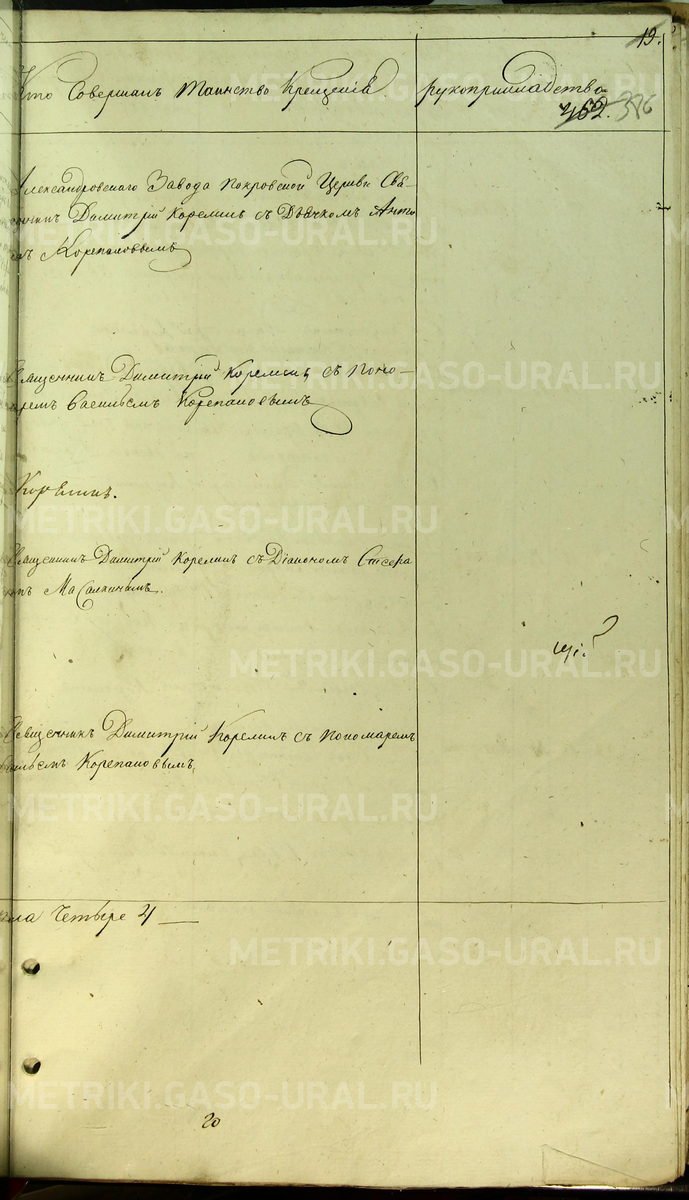 19.
Кто Совершалъ Таинство Крещенїя
рукоприкладства
452. 386
Александровскаго Завода покровской Церкви Свя-
щенникъ Димитрїй Корелинъ съ Дьячкомъ
Корепановымъ
Священникъ Димитрїй Корелинъ съ Поно-
маремъ Васильемъ Корепановымъ
Корелинъ.
Священникъ Димитрїй Корелинъ съ Дїакономъ
Масалкинымъ.
Священникъ Димитрїй Корелинъ съ Пономаремъ
Васильемъ Корепановымъ
Четыре 4
20
METRIKI.GASO-URAL.RU